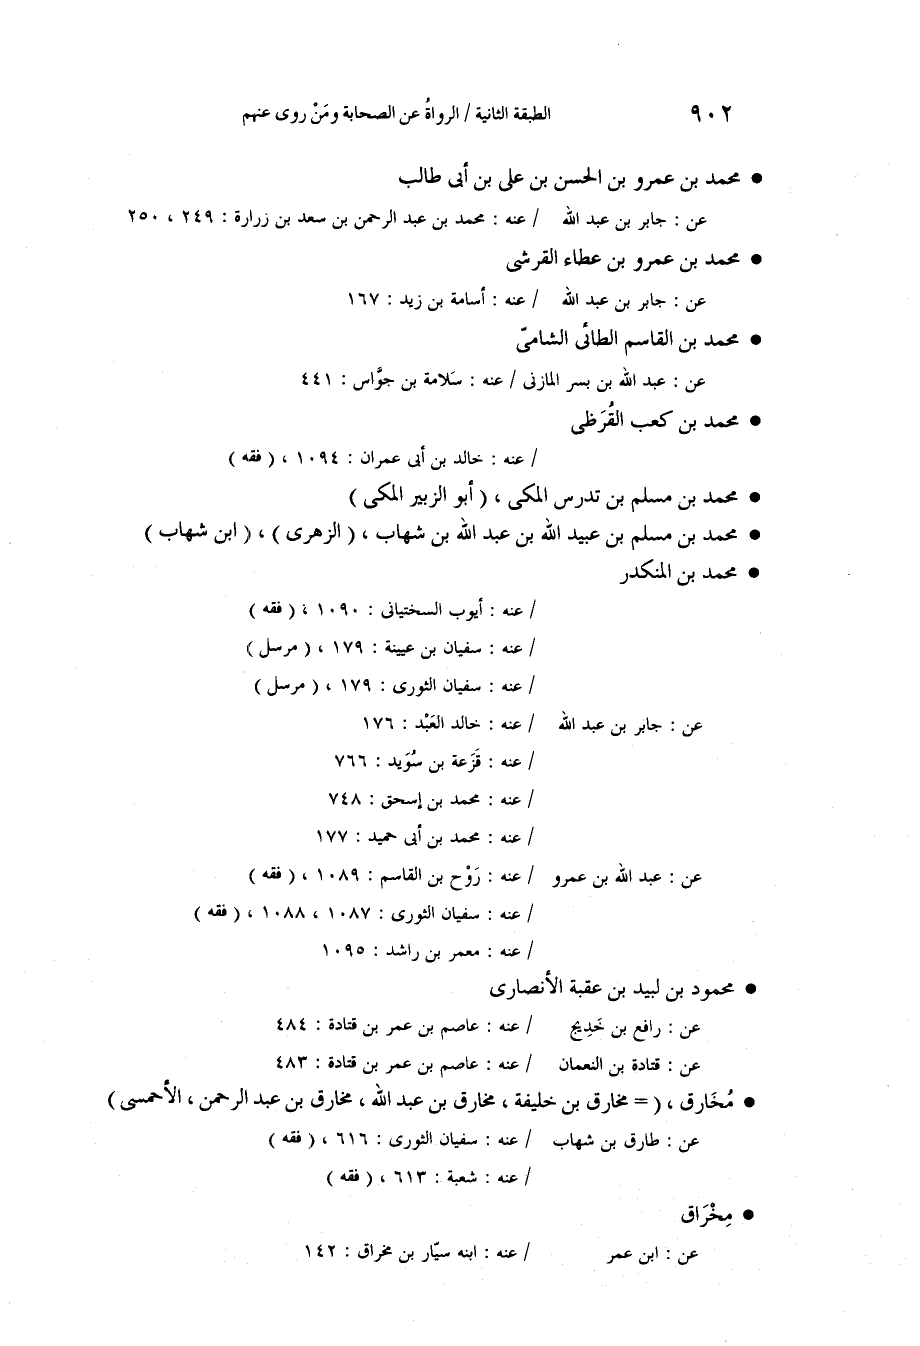 ٩٠٢ الطبقة الثانية / الرواةُ عن الصحابة ومَنْ روى عنهم
● محمد بن عمرو بن الحسن بن على بن أبى طالب
عن : جابر بن عبد الله / عنه : محمد بن عبد الرحمن بن سعد بن زرارة : ٢٤٩ ، ٢٥٠
● محمد بن عمرو بن عطاء القرشى
عن : جابر بن عبد الله / عنه : أسامة بن زيد : ١٦٧
● محمد بن القاسم الطائى الشامىّ
عن : عبد الله بن بسر المازنى / عنه : سَلامة بن جوَّاس : ٤٤١
● محمد بن كعب القُرَظى
/ عنه : خالد بن أبى عمران : ١٠٩٤ ، ( فقه )
● محمد بن مسلم بن تدرس المكى ، ( أبو الزبير المكى )
● محمد بن مسلم بن عبيد الله بن عبد الله بن شهاب ، ( الزهرى ) ، ( ابن شهاب )
● محمد بن المنكدر
/ عنه : أيوب السختيانى : ١٠٩٠ ، ( فقه )
/ عنه : سفيان بن عيينة : ١٧٩ ، ( مرسل )
/ عنه : سفيان الثورى : ١٧٩ ، ( مرسل )
عن : جابر بن عبد الله / عنه : خالد العَبْد : ١٧٦
/ عنه : قَزَعة بن سُوَيد : ٧٦٦
/ عنه : محمد بن إسحق : ٧٤٨
/ عنه : محمد بن أبى حميد : ١٧٧
عن : عبد الله بن عمرو / عنه : رَوْح بن القاسم : ١٠٨٩ ، ( فقه )
/ عنه : سفيان الثورى : ١٠٨٧ ، ١٠٨٨ ، ( فقه )
/ عنه : معمر بن راشد : ١٠٩٥
● محمود بن لبيد بن عقبة الأنصارى
عن : رافع بن خَدِيج / عنه : عاصم بن عمر بن قتادة : ٤٨٤
عن : قتادة بن النعمان / عنه : عاصم بن عمر بن قتادة : ٤٨٣
● مُخَارق ، ( = مخارق بن خليفة ، مخارق بن عبد الله ، مخارق بن عبد الرحمن ، الأحمسى )
عن : طارق بن شهاب / عنه : سفيان الثورى : ٦١٦ ، ( فقه )
/ عنه : شعبة : ٦١٣ ، ( فقه )
● مِخْرَاق
عن : ابن عمر / عنه : ابنه سيّار بن مخراق : ١٤٢